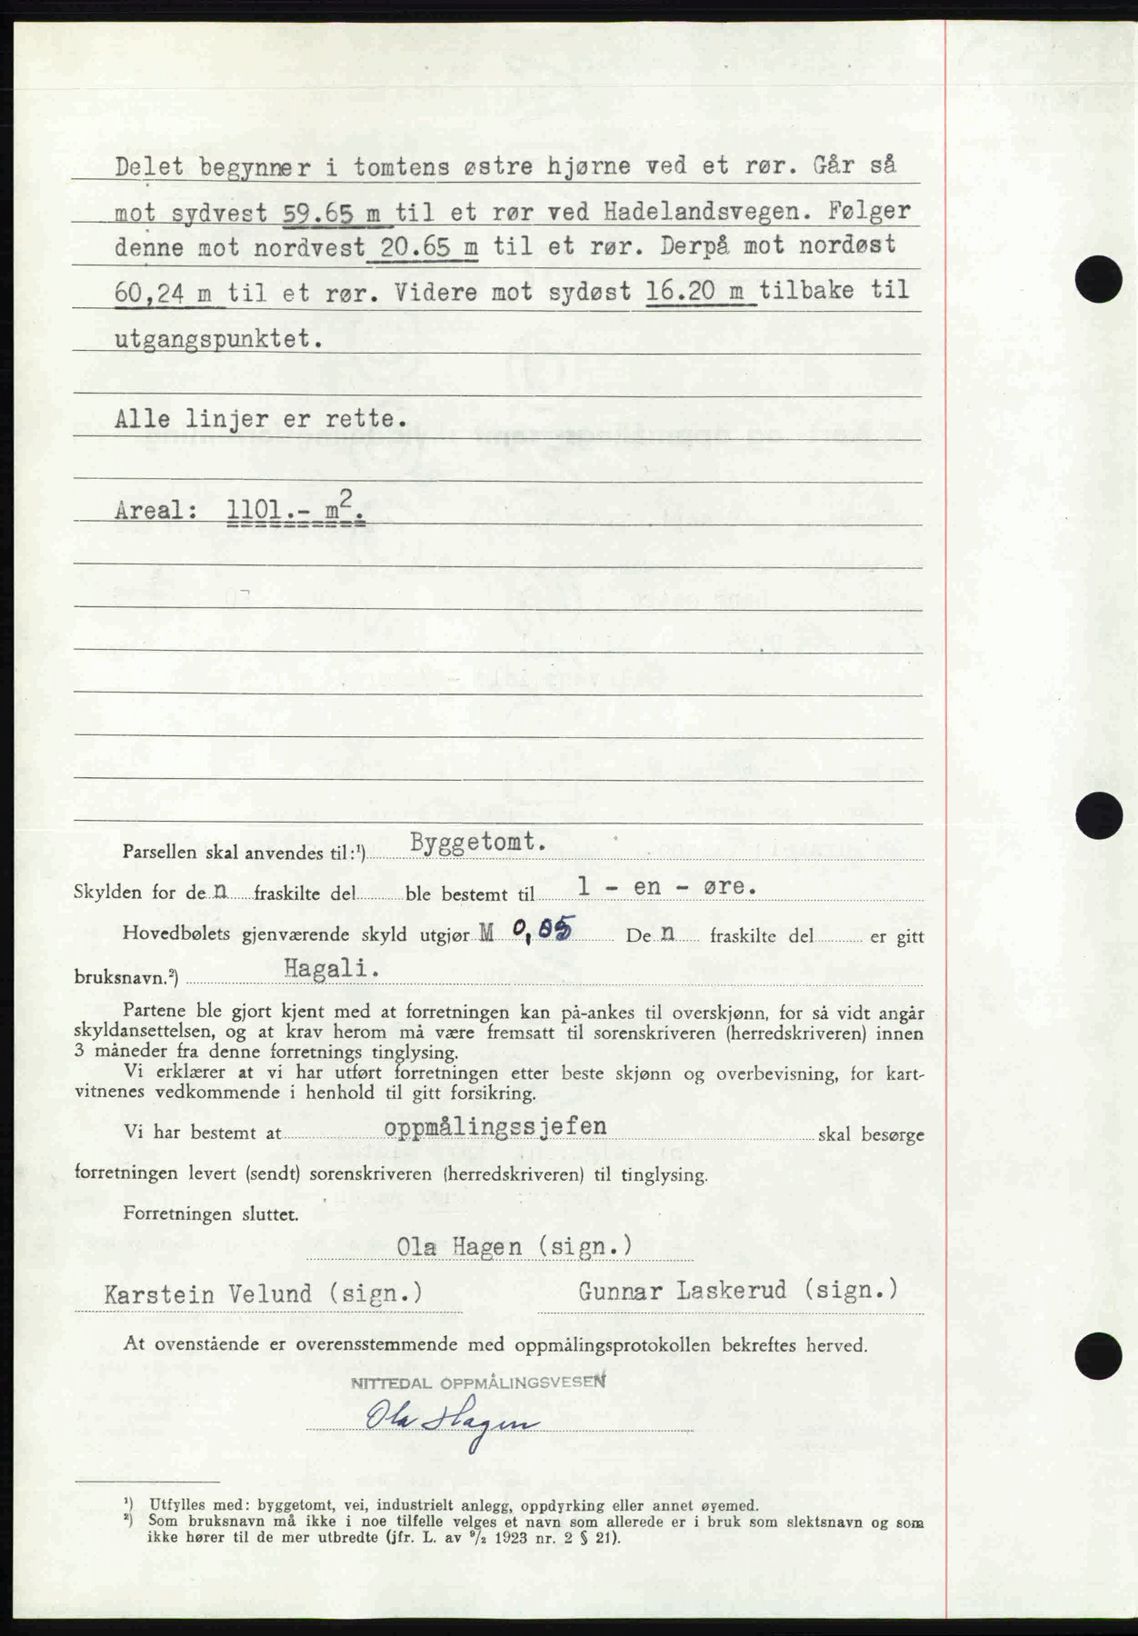 Delet begynner i tomtens østre hjørne ved et rør. Går så
mot sydvest 59.65 m til et rør ved Hadelandsvegen. Følger
denne mot nordvest 20.65 m til et rør. Derpå mot nordøst
60,24 m til et rør. Videre mot sydøst 16.20 m tilbake til
utgangspunktet.
Alle linjer er rette.
Areal: 1101.- m².
Parsellen skal anvendes til:¹) Byggetomt.
Skylden for den fraskilte del ble bestemt til 1 - en - øre.
Hovedbølets gjenværende skyld utgjør M 0,05 Den fraskilte del er gitt
bruksnavn.²) Hagali.
Partene ble gjort kjent med at forretningen kan på-ankes til overskjønn, for så vidt angår
skyldansettelsen, og at krav herom må være fremsatt til sorenskriveren (herredskriveren) innen
3 måneder fra denne forretnings tinglysing.
Vi erklærer at vi har utført forretningen etter beste skjønn og overbevisning, for kart-
vitnenes vedkommende i henhold til gitt forsikring.
Vi har bestemt at oppmålingssjefen skal besørge
forretningen levert (sendt) sorenskriveren (herredskriveren) til tinglysing.
Forretningen sluttet.
Ola Hagen (sign.)
Karstein Velund (sign.) Gunnar Laskerud (sign.)
At ovenstående er overensstemmende med oppmålingsprotokollen bekreftes herved.
NITTEDAL OPPMÅLINGSVESEN
Ola Hagen
¹) Utfylles med: byggetomt, vei, industrielt anlegg, oppdyrking eller annet øyemed.
²) Som bruksnavn må ikke i noe tilfelle velges et navn som allerede er i bruk som slektsnavn og som
ikke hører til de mer utbredte (jfr. L. av 9/2 1923 nr. 2 § 21).